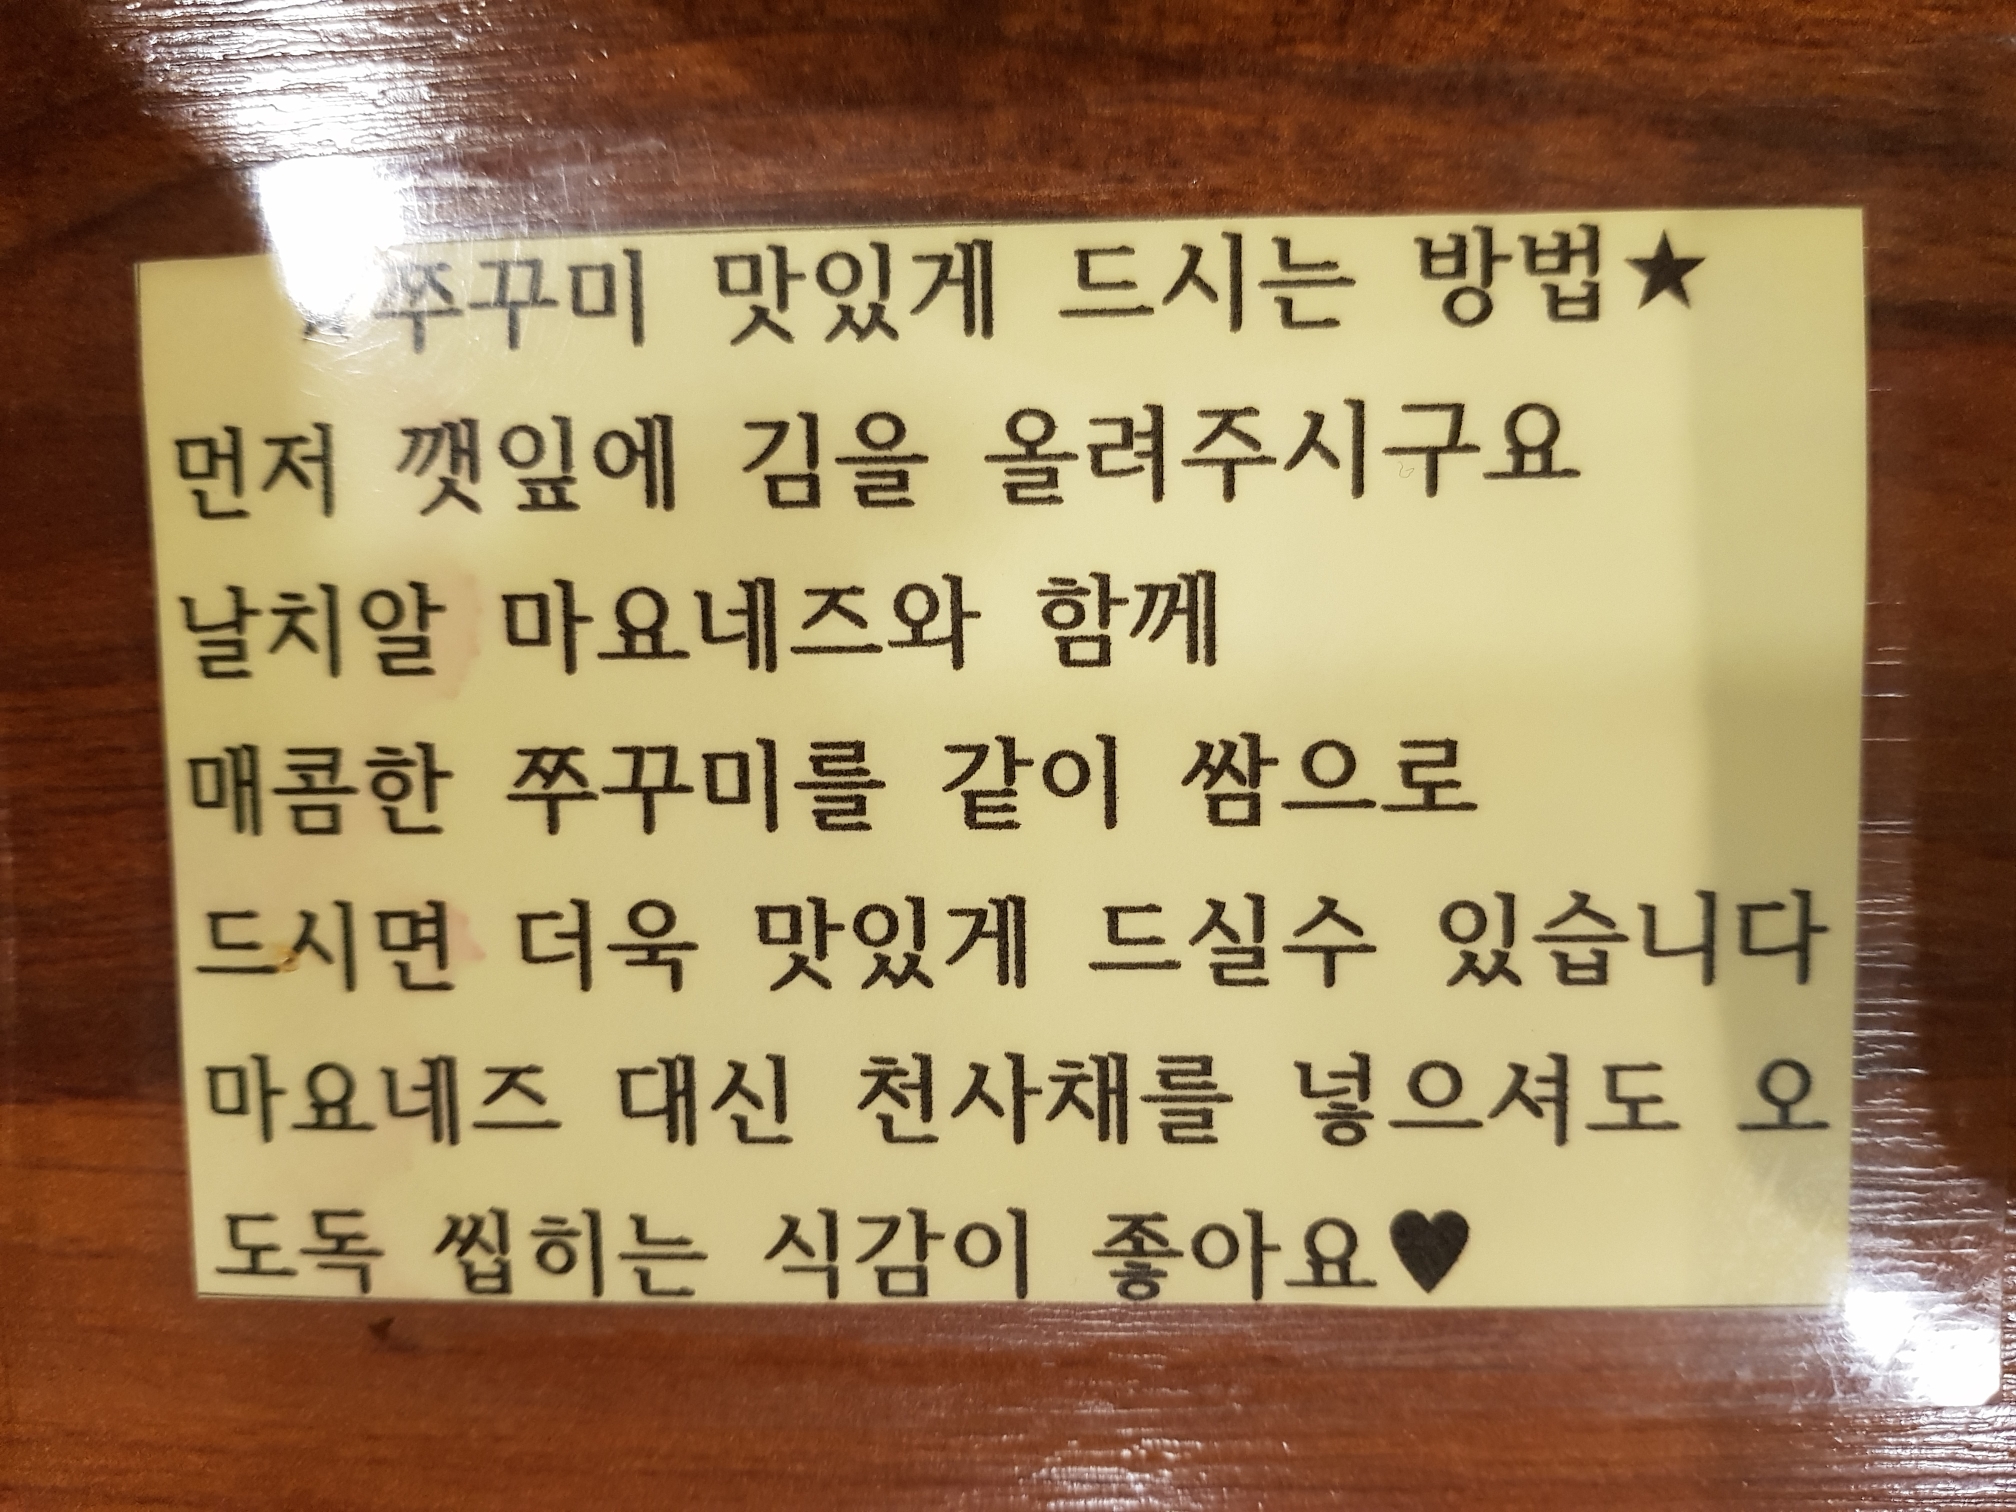 ★쭈꾸미 맛있게 드시는 방법★
먼저 깻잎에 김을 올려주시구요
날치알 마요네즈와 함께
매콤한 쭈꾸미를 같이 쌈으로
드시면 더욱 맛있게 드실수 있습니다
마요네즈 대신 천사채를 넣으셔도 오
도독 씹히는 식감이 좋아요♥